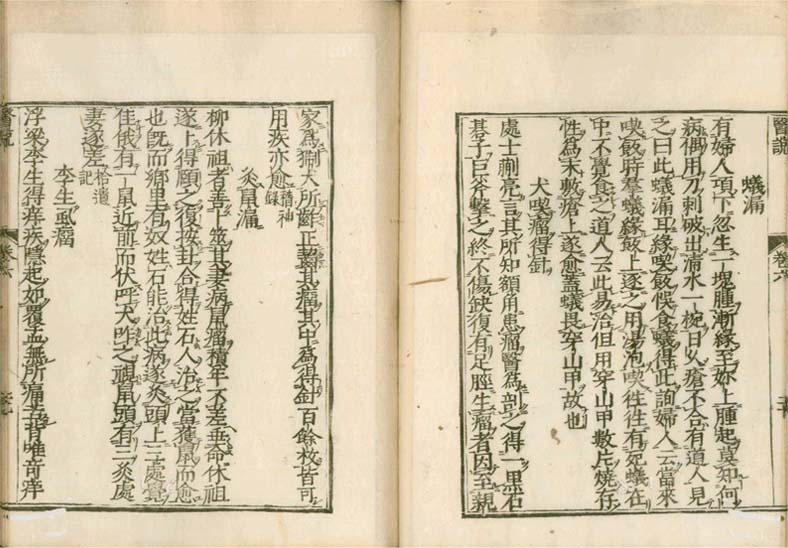 醫說
卷六
蟻漏
有婦人項下忽生一塊腫漸緣至妳上腫起莫知何
病偶用刀刺破出清水一椀日久瘡不合有道人見
之曰此蟻漏耳緣喫飯悮食蟻得此詢婦人云當來
喫飯時羣蟻緣飯上逐之用湯泡喫徃徃有死蟻在
中不覺食之道人云此易治但用穿山甲數片燒存
性為末敷瘡上遂愈蓋蟻畏穿山甲故也
犬囓瘤得針
處士蒯亮言其所知額角患瘤醫為剖之得一黒石
碁子巨斧擊之終不傷缺復有足脛生瘤者因至親
家為猘犬所齚正齧其瘤其中為得針百餘枚皆可
用疾亦愈稽神錄
灸鼠漏
柳休祖者善卜筮其妻病鼠瘤積年不差垂命休祖
遂卜得頤之復按卦合得姓石人治之當獲鼠而愈
也旣而鄉里有奴姓石能治此病遂灸頭上三處覺
佳俄有一鼠近前而伏呼犬咋之視鼠頭有三灸處
妻遂差拾遺記
李生虱瘤
浮梁李生得痒疾隱起如覆盂無所痛苦背唯竒痒
醫說
卷六